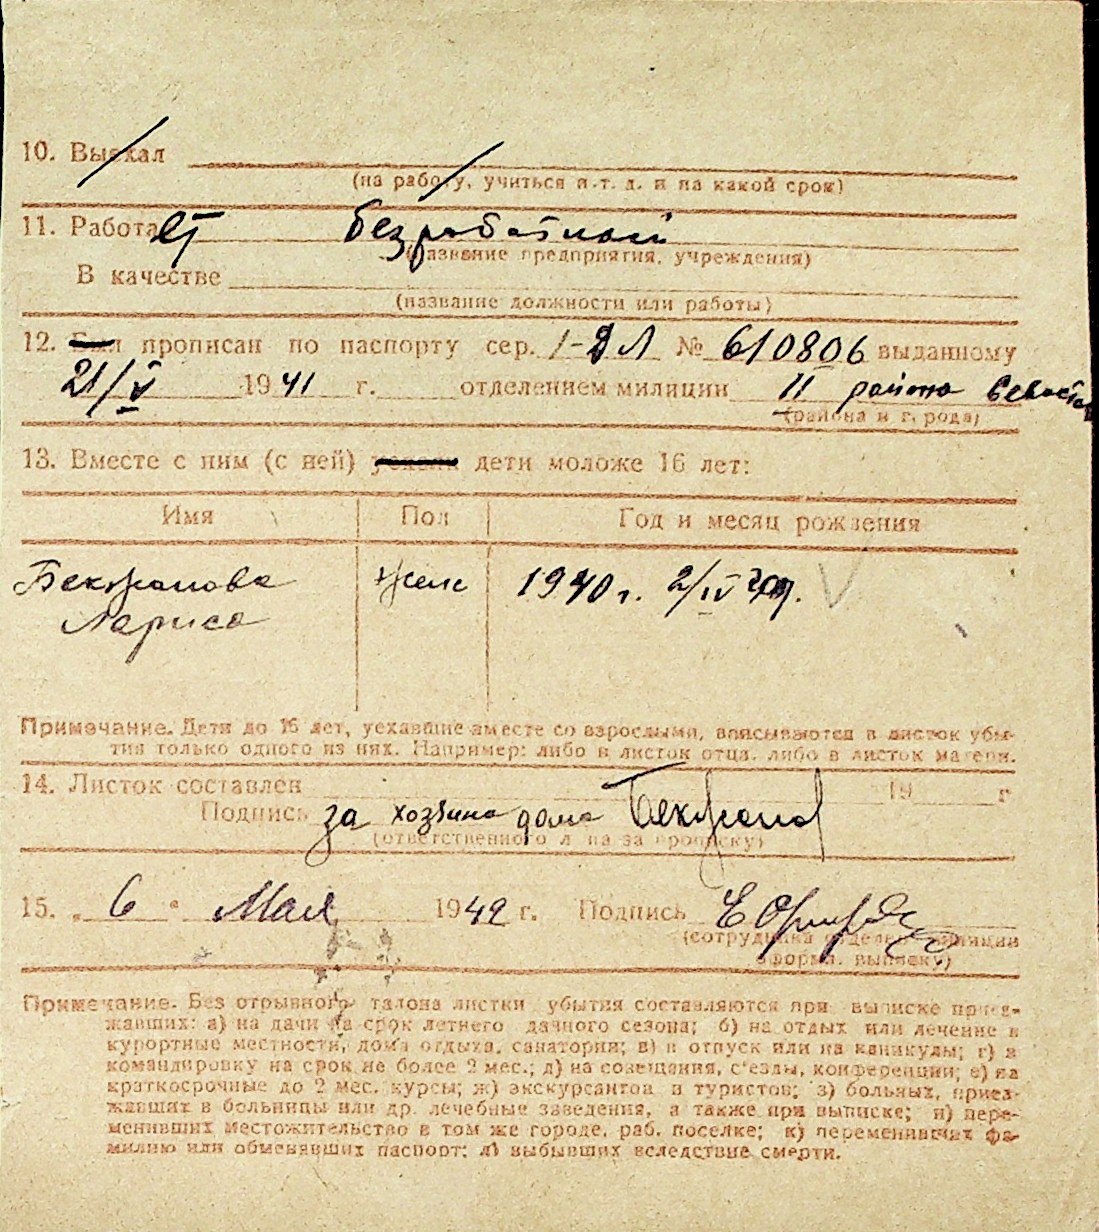 10. Выехал
(на работу, учиться и т. д. и на какой срок)
11. Работает безработной
(название предприятия, учреждения)
В качестве
(название должности или работы)
12. Был прописан по паспорту сер. 1-ДЛ № 610806 выданному
21/V 1941 г. отделением милиции II района Севаст
(района и города)
13. Вместе с ним (с ней) уехали дети моложе 16 лет:
Имя Пол Год и месяц рождения
Бекжанова женс 1940 г. 2/IV
Лариса
Примечание. Дети до 16 лет, уехавшие вместе со взрослыми, вписываются в листок убы-
тия только одного из них. Например: либо в листок отца, либо в листок матери.
14. Листок составлен 19 г
Подпись за хозяина дома Бекжанов
(ответственного л на за прописку)
15. „ 6 " Мая 1942 г. Подпись
(сотрудника отделен. милиции
оформл. выписку)
Примечание. Без отрывного талона листки убытия составляются при выписке приез-
жавших: а) на дачи на срок летнего дачного сезона; б) на отдых или лечение в
курортные местности, дома отдыха, санатории; в) в отпуск или на каникулы; г) в
командировку на срок не более 2 мес.; д) на совещания, с'езды, конференции; е) на
краткосрочные до 2 мес. курсы; ж) экскурсантов и туристов; з) больных, приез-
жавших в больницы или др. лечебные заведения, а также при выписке; и) пере-
менивших местожительство в том же городе, раб. поселке; к) переменивших фа-
милию или обменявших паспорт; л) выбывших вследствие смерти.